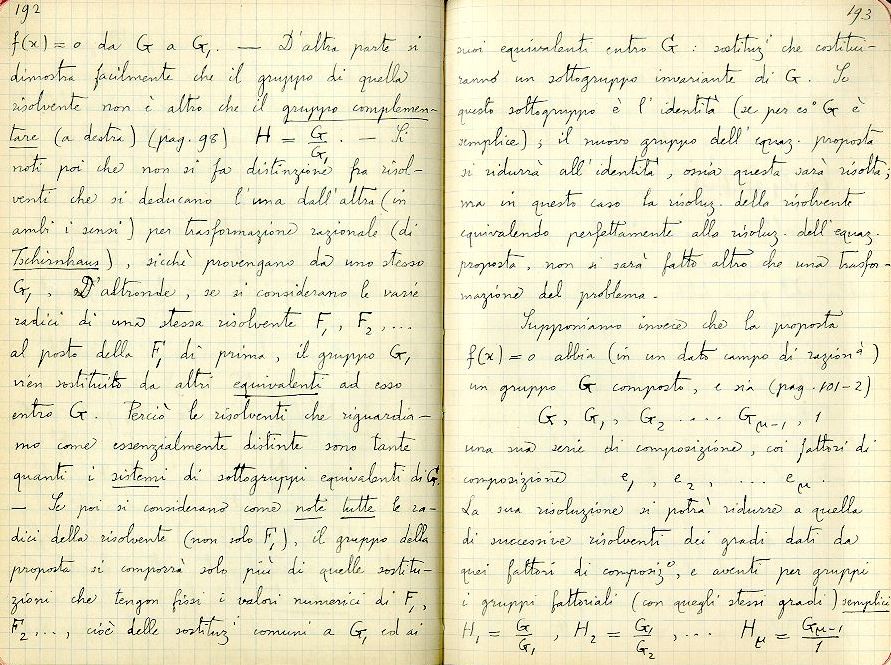 192
f(x) = 0 da G a G₁. — D'altra parte si
dimostra facilmente che il gruppo di quella
risolvente non è altro che il gruppo complemen-
tare (a destra) (pag. 98) H = G/G₁. — Si
noti poi che non si fa distinzione fra risol-
venti che si deducano l'una dall'altra (in
ambi i sensi) per trasformazione razionale (di
Tschirnhaus), sicchè provengano da uno stesso
G₁. D'altronde, se si considerano le varie
radici di una stessa risolvente F₁, F₂, ...
al posto della F₁ di prima, il gruppo G₁
vien sostituito da altri equivalenti ad esso
entro G. Perciò le risolventi che riguardia-
mo come essenzialmente distinte sono tante
quanti i sistemi di sottogruppi equivalenti di G.
— Se poi si considerano come note tutte le ra-
dici della risolvente (non solo F₁), il gruppo della
proposta si comporrà solo più di quelle sostitu-
zioni che tengon fissi i valori numerici di F₁,
F₂, ..., cioè delle sostituzⁱ comuni a G₁ ed ai
193
suoi equivalenti entro G : sostituzⁱ che costitui-
ranno un sottogruppo invariante di G. Se
questo sottogruppo è l'identità (se per es° G è
semplice); il nuovo gruppo dell'equaz. proposta
si ridurrà all'identità, ossia questa sarà risolta;
ma in questo caso la risoluz. della risolvente
equivalendo perfettamente alla risoluz. dell'equaz.
proposta, non si sarà fatto altro che una trasfor-
mazione del problema.
Supponiamo invece che la proposta
f(x) = 0 abbia (in un dato campo di razionᵃ)
un gruppo G composto, e sia (pag. 101-2)
G, G₁, G₂ .... G_{μ-1}, 1
una sua serie di composizione, coi fattori di
composizione e₁, e₂, ... e_μ.
La sua risoluzione si potrà ridurre a quella
di successive risolventi dei gradi dati da
quei fattori di composiz°, e aventi per gruppi
i gruppi fattoriali (con quegli stessi gradi) semplici
H₁ = G/G₁, H₂ = G₁/G₂, ... H_μ = G_{μ-1}/1